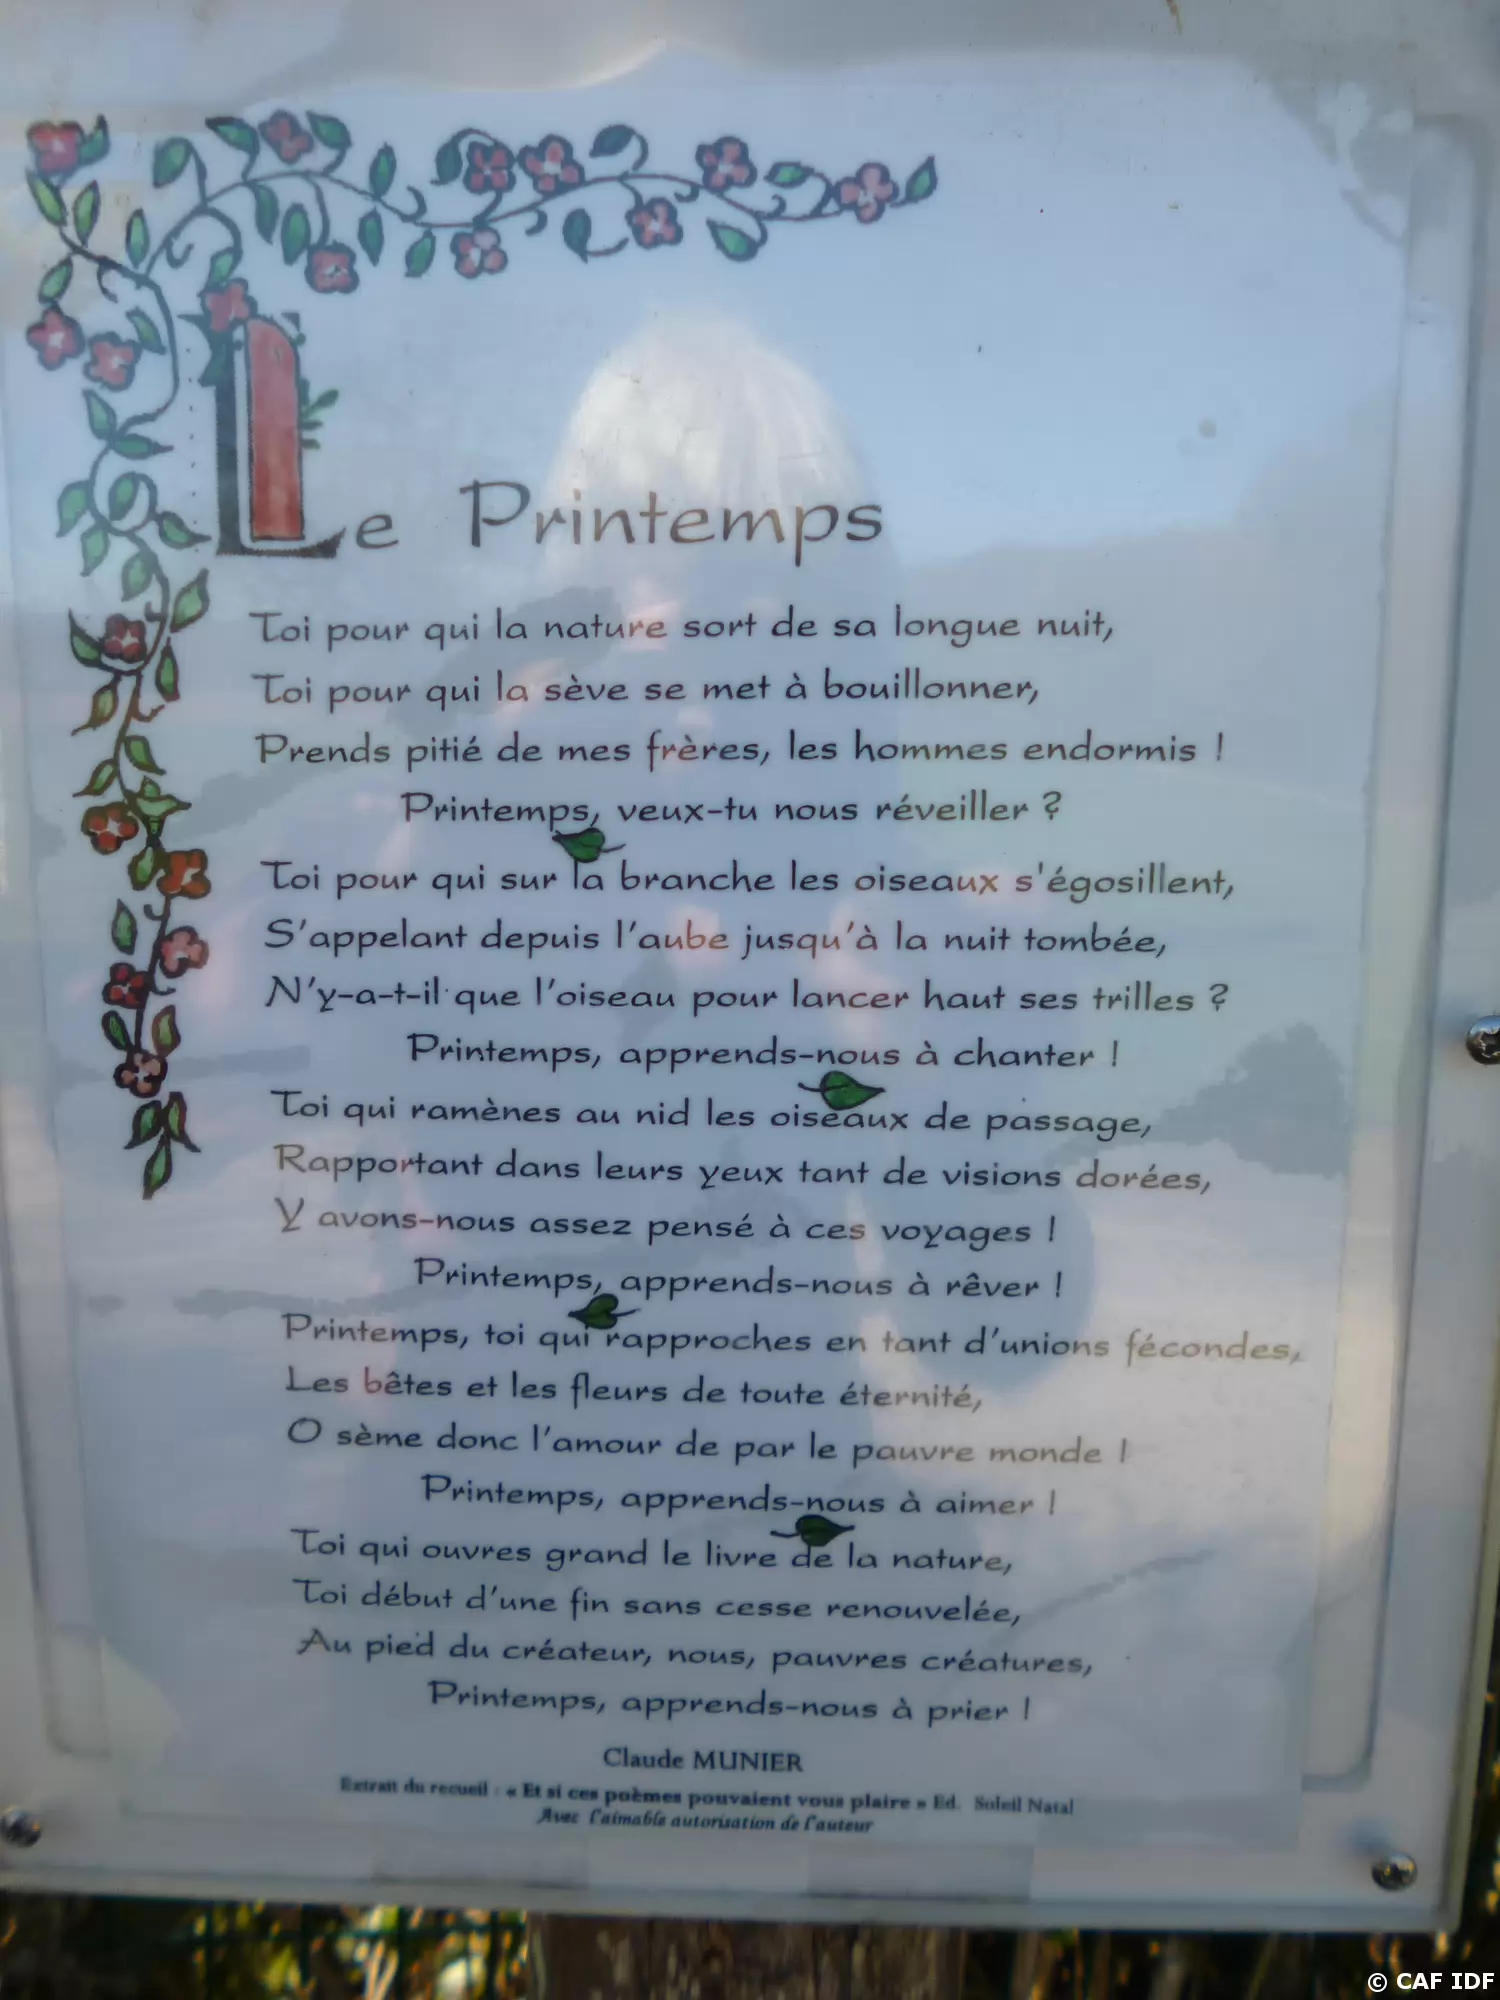 Le Printemps
Toi pour qui la nature sort de sa longue nuit,
Toi pour qui la sève se met à bouillonner,
Prends pitié de mes frères, les hommes endormis !
Printemps, veux-tu nous réveiller ?
Toi pour qui sur la branche les oiseaux s'égosillent,
S'appelant depuis l'aube jusqu'à la nuit tombée,
N'y-a-t-il que l'oiseau pour lancer haut ses trilles ?
Printemps, apprends-nous à chanter !
Toi qui ramènes au nid les oiseaux de passage,
Rapportant dans leurs yeux tant de visions dorées,
Y avons-nous assez pensé à ces voyages !
Printemps, apprends-nous à rêver !
Printemps, toi qui rapproches en tant d'unions fécondes,
Les bêtes et les fleurs de toute éternité,
O sème donc l'amour de par le pauvre monde !
Printemps, apprends-nous à aimer !
Toi qui ouvres grand le livre de la nature,
Toi début d'une fin sans cesse renouvelée,
Au pied du créateur, nous, pauvres créatures,
Printemps, apprends-nous à prier !
Claude MUNIER
Extrait du recueil : « Et si ces poèmes pouvaient vous plaire » Ed. Soleil Natal
Avec l'aimable autorisation de l'auteur
© CAF IDF